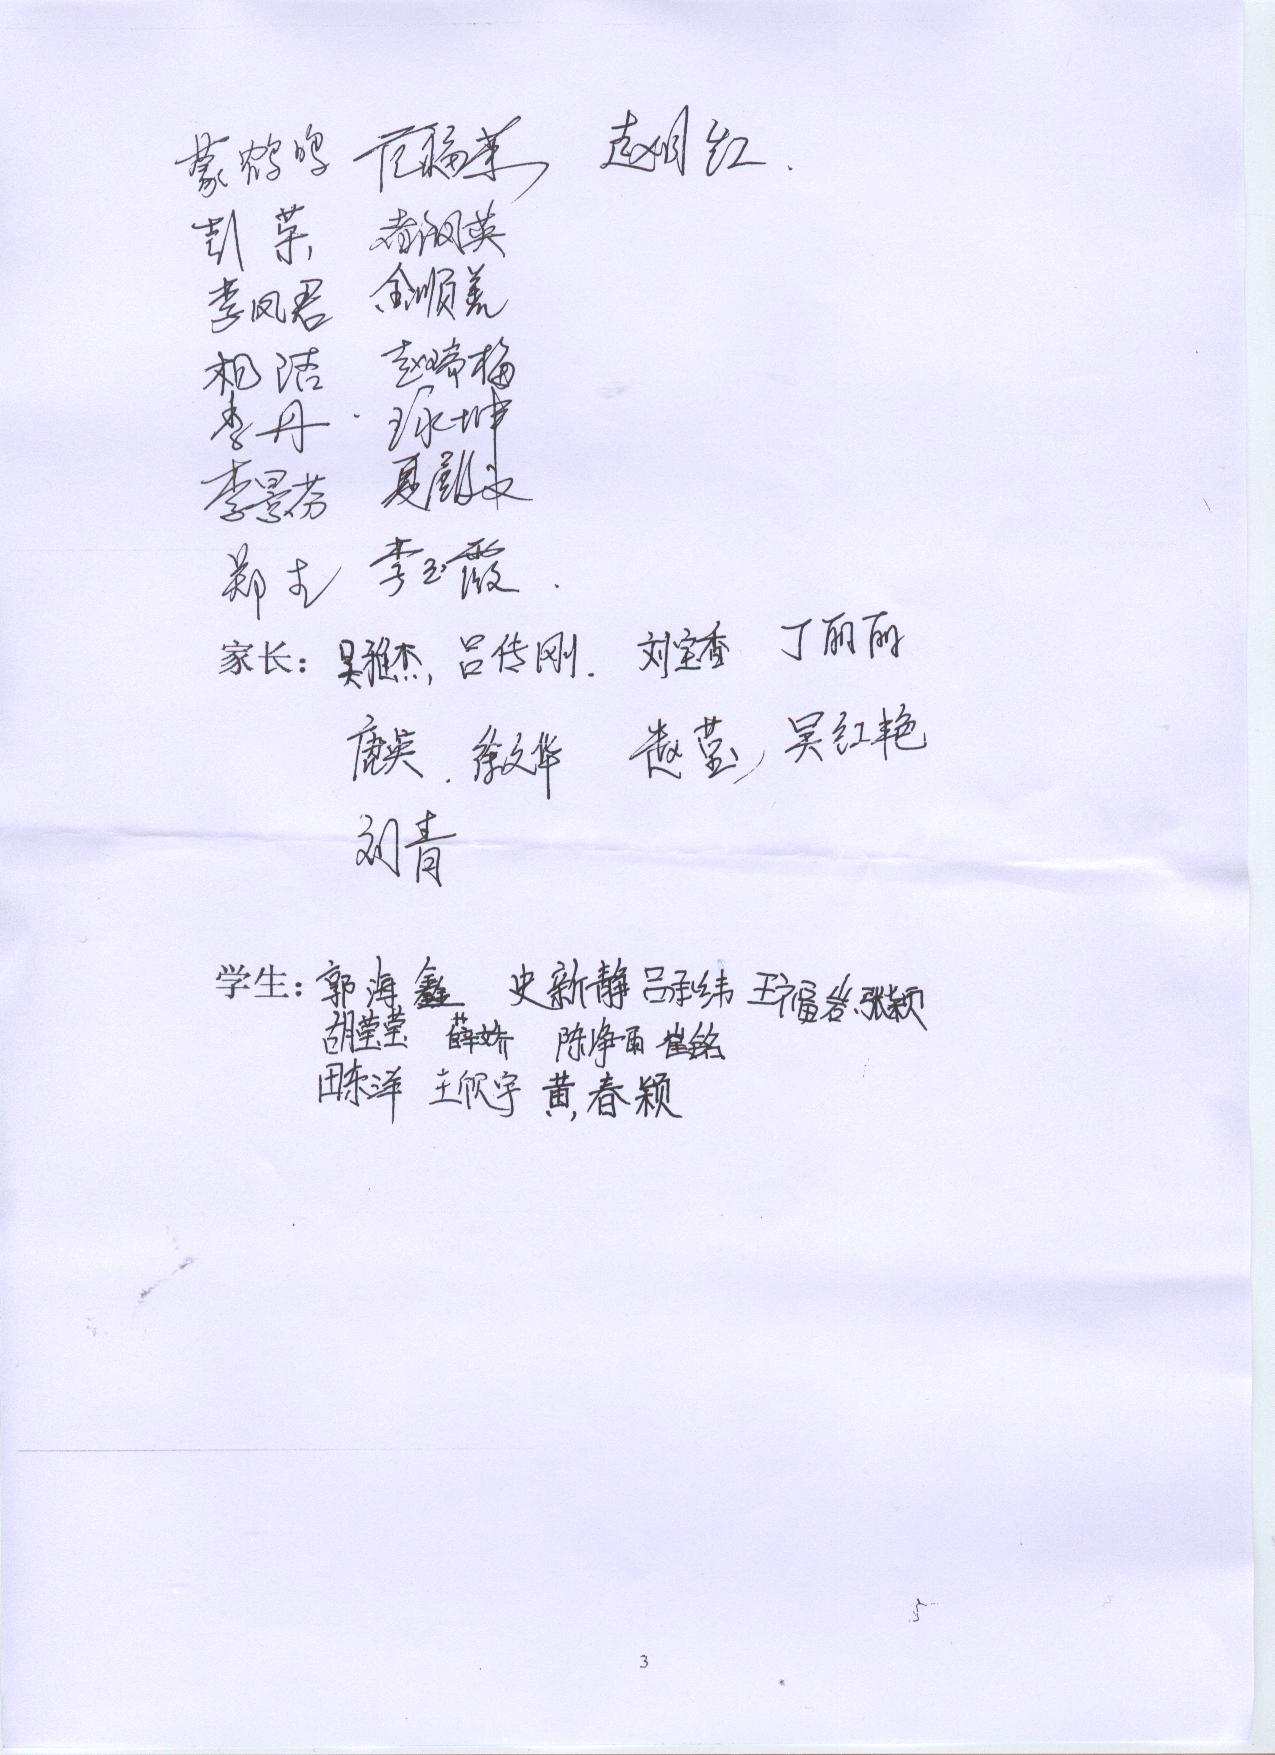 蒙鹤鸣 范福英 赵明红.
彭英 凤英
李凤君 金顺善
相洁 赵瑞梅
李丹 坤
李景芬 夏
郑 李玉霞.
家长: 吴雅杰, 吕传刚. 刘宝香 丁丽丽
唐英. 徐文华 赵莹, 吴红艳
刘青
学生: 郭海鑫 史新静 吕承纬 王福岩 张颖
胡莹莹 薛娇 陈净雨 崔铭
田东洋 王欣宇 黄春颖
3